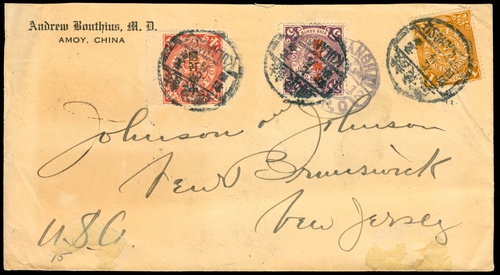 Andrew Bonthius, M. D.
AMOY, CHINA
Johnson on Johnson
New Brunswick
New Jersey
U.S.A.
15